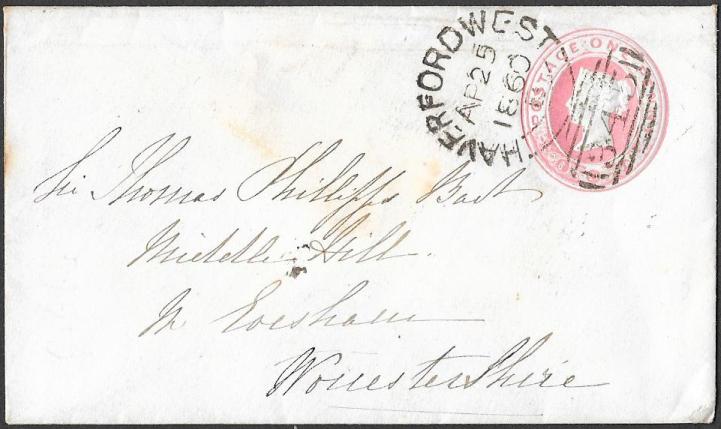 HAVERFORDWEST
AP 25
1860
POSTAGE ON
Sir Thomas Phillipps Bart
Middle Hill
Nr Evesham
Worcestershire